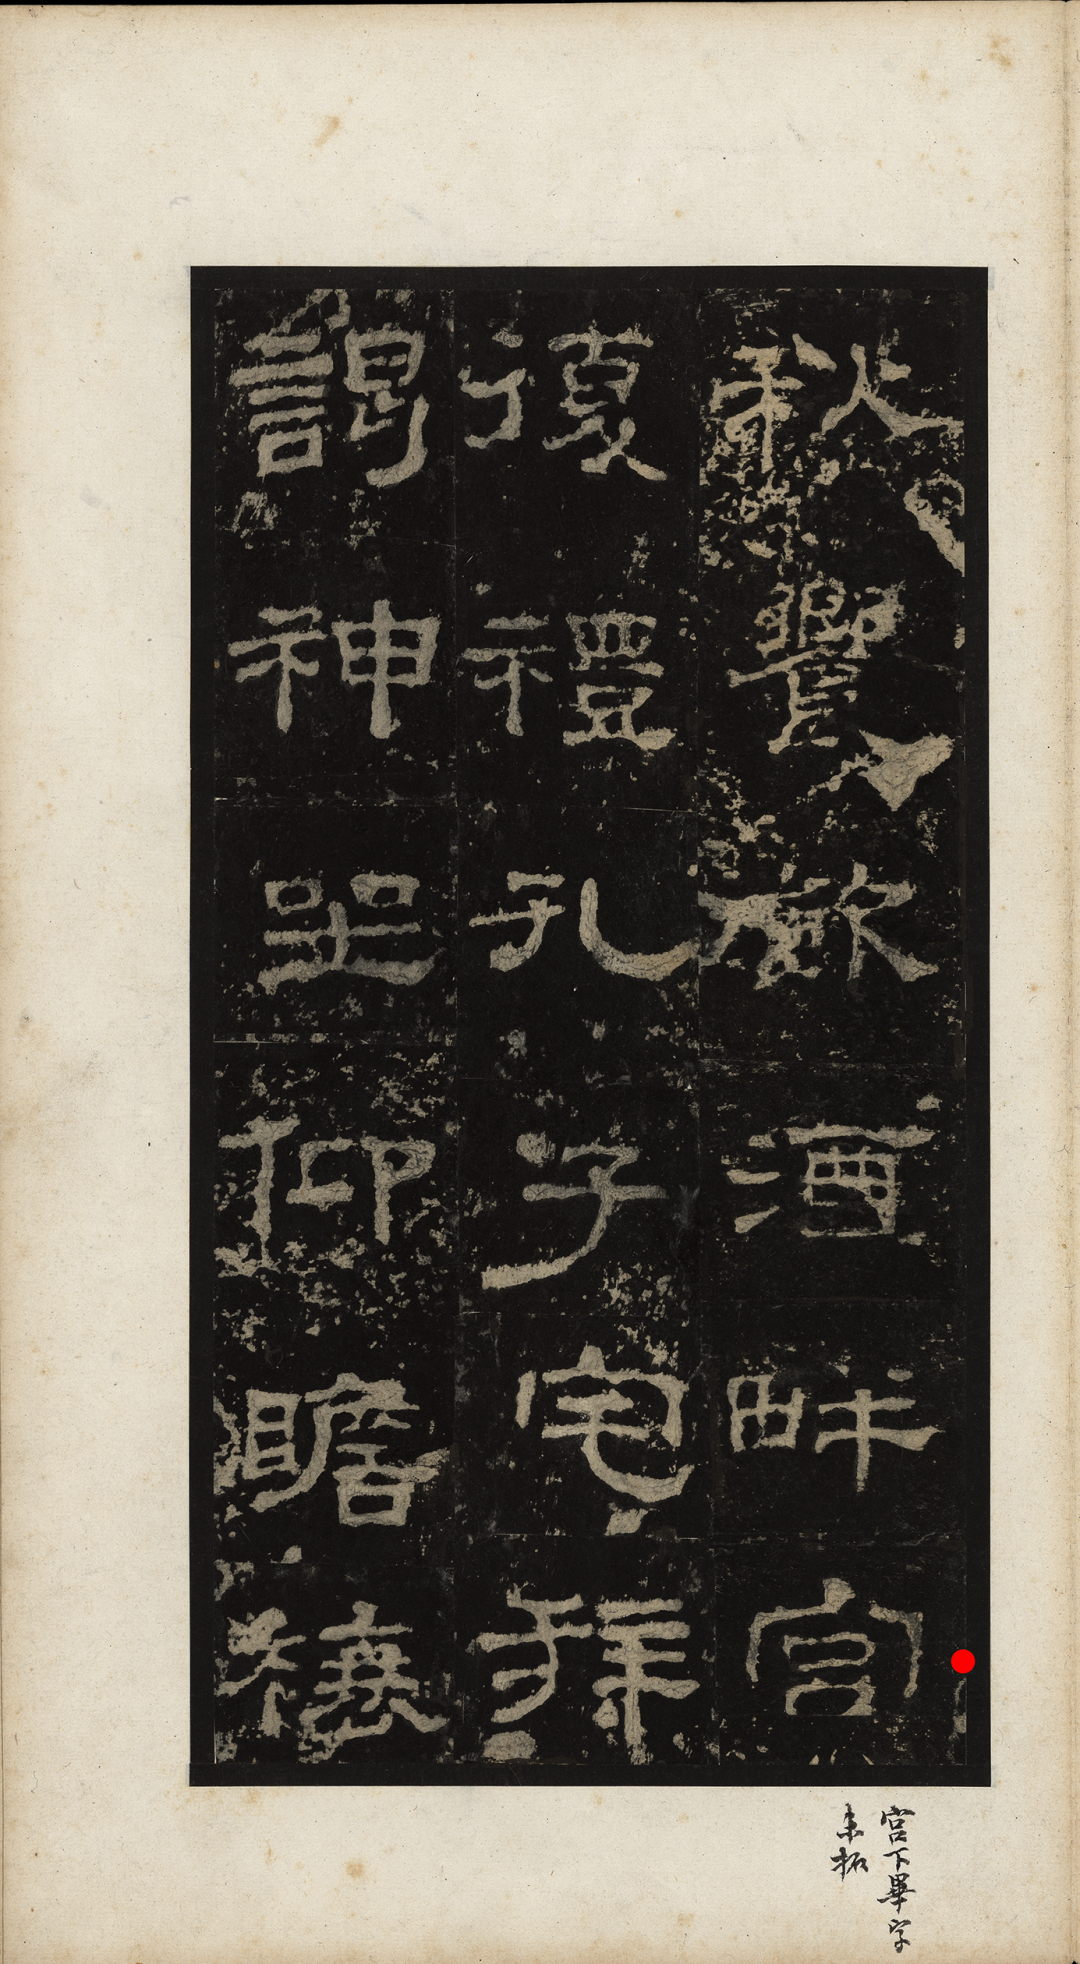 秋饗飲酒畔宮
復禮孔子宅拜
謁神坐仰瞻榱
宮下畢字
未拓